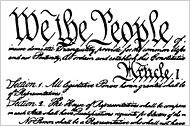 We the People of
insure domestic Tranquility, provide for the common
and our Posterity, do ordain and establish this Constitution
Article. I.
Section. 1. All legislative Powers herein granted shall be
of Representatives.
Section. 2. The House of Representatives shall be
in each State shall have Qualifications requisite for Electors of the
No Person shall be a Representative who shall not have